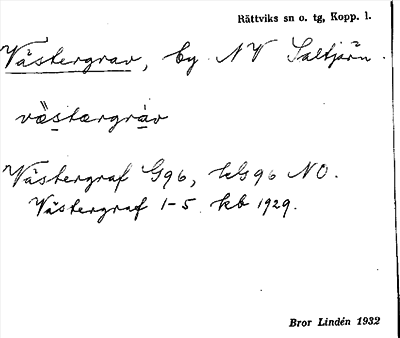 Rättviks sn o. tg, Kopp. l.
Västergrav, by NV Saltjärn.
væ̀stærgràv
Västergraf G96, kG96 NO.
Västergraf 1-5 kb 1929.
Bror Lindén 1932